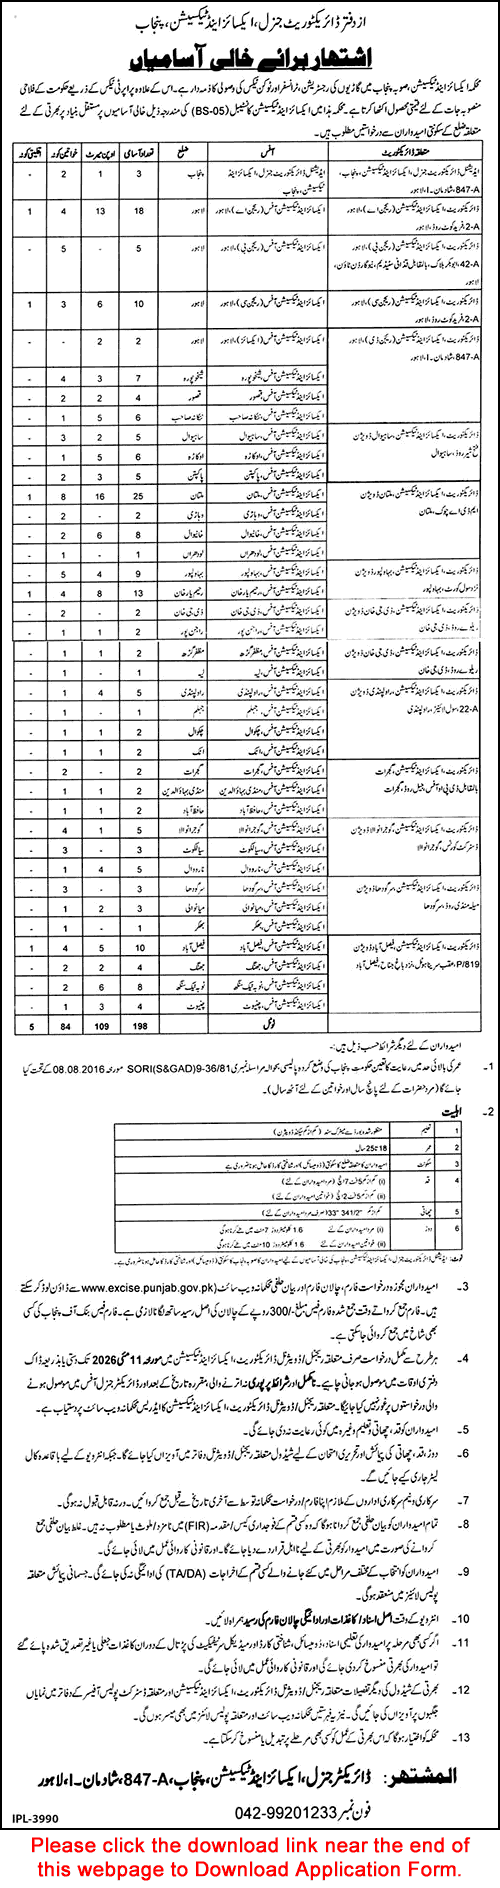 از دفتر ڈائریکٹوریٹ جنرل، ایکسائز اینڈ ٹیکسیشن، پنجاب
اشتہار برائے خالی آسامیاں
محکمہ ایکسائز اینڈ ٹیکسیشن، صوبہ پنجاب میں گاڑیوں کی رجسٹریشن، ٹرانسفر اور ٹوکن ٹیکس کی وصولی کا ذمہ دار ہے۔ اس کے علاوہ پراپرٹی ٹیکس کے ذریعے حکومت کے فلاحی
منصوبہ جات کے لئے قیمتی محصول اکٹھا کرتا ہے۔ محکمہ ہذا میں ایکسائز اینڈ ٹیکسیشن کانسٹیبل (BS-05) کی مندرجہ ذیل خالی آسامیوں پر مستقل بنیاد پر بھرتی کے لئے
متعلقہ ضلع کے سکونتی امیدواران سے درخواستیں مطلوب ہیں۔
متعلقہ ڈائریکٹوریٹ آفس ضلع تعداد آسامی اوپن میرٹ خواتین کوٹہ اقلیتی کوٹہ
ایڈیشنل ڈائریکٹوریٹ جنرل، ایکسائز اینڈ ٹیکسیشن، پنجاب، ایڈیشنل ڈائریکٹوریٹ جنرل، ایکسائز اینڈ پنجاب 3 1 2 -
847-A، شادمان-I، لاہور ٹیکسیشن، پنجاب
ڈائریکٹوریٹ، ایکسائز اینڈ ٹیکسیشن (ریجن اے)، لاہور ایکسائز اینڈ ٹیکسیشن آفس (ریجن اے)، لاہور لاہور 18 13 4 1
2-A، فرید کوٹ روڈ، لاہور
ڈائریکٹوریٹ، ایکسائز اینڈ ٹیکسیشن (ریجن بی)، لاہور ایکسائز اینڈ ٹیکسیشن آفس (ریجن بی)، لاہور لاہور 5 - 5 -
42-A، ابوبکر بلاک، بالمقابل قذافی سٹیڈیم، نیو گارڈن ٹاؤن، لاہور
ڈائریکٹوریٹ، ایکسائز اینڈ ٹیکسیشن (ریجن سی)، لاہور ایکسائز اینڈ ٹیکسیشن آفس (ریجن سی)، لاہور لاہور 10 6 3 1
2-A، فرید کوٹ روڈ، لاہور
ڈائریکٹوریٹ، ایکسائز اینڈ ٹیکسیشن (ریجن ڈی)، لاہور ایکسائز اینڈ ٹیکسیشن آفس (ایکسائز)، لاہور لاہور 2 2 - -
847-A، شادمان-I، لاہور
ایکسائز اینڈ ٹیکسیشن آفس، شیخوپورہ شیخوپورہ 7 3 4 -
ایکسائز اینڈ ٹیکسیشن آفس، قصور قصور 4 2 2 -
ایکسائز اینڈ ٹیکسیشن آفس، ننکانہ صاحب ننکانہ صاحب 6 5 1 -
ڈائریکٹوریٹ، ایکسائز اینڈ ٹیکسیشن، ساہیوال ڈویژن ایکسائز اینڈ ٹیکسیشن آفس، ساہیوال ساہیوال 5 2 3 -
فتح شیر روڈ، ساہیوال ایکسائز اینڈ ٹیکسیشن آفس، اوکاڑہ اوکاڑہ 6 5 1 -
ایکسائز اینڈ ٹیکسیشن آفس، پاکپتن پاکپتن 5 3 2 -
ڈائریکٹوریٹ، ایکسائز اینڈ ٹیکسیشن، ملتان ڈویژن ایکسائز اینڈ ٹیکسیشن آفس، ملتان ملتان 25 16 8 1
ایم ڈی اے چوک، ملتان ایکسائز اینڈ ٹیکسیشن آفس، وہاڑی وہاڑی 2 - 2 -
ایکسائز اینڈ ٹیکسیشن آفس، خانیوال خانیوال 8 6 2 -
ایکسائز اینڈ ٹیکسیشن آفس، لودھراں لودھراں 1 1 - -
ڈائریکٹوریٹ، ایکسائز اینڈ ٹیکسیشن، بہاولپور ڈویژن ایکسائز اینڈ ٹیکسیشن آفس، بہاولپور بہاولپور 9 4 5 -
نزد سول کورٹ، بہاولپور ایکسائز اینڈ ٹیکسیشن آفس، رحیم یار خان رحیم یار خان 13 8 4 1
ڈائریکٹوریٹ، ایکسائز اینڈ ٹیکسیشن، ڈی جی خان ڈویژن ایکسائز اینڈ ٹیکسیشن آفس، ڈی جی خان ڈی جی خان 2 - 2 -
ریلوے روڈ، ڈی جی خان ایکسائز اینڈ ٹیکسیشن آفس، راجن پور راجن پور 2 1 1 -
ڈائریکٹوریٹ، ایکسائز اینڈ ٹیکسیشن، ڈی جی خان ڈویژن ایکسائز اینڈ ٹیکسیشن آفس، مظفر گڑھ مظفر گڑھ 2 1 1 -
ریلوے روڈ، ڈی جی خان ایکسائز اینڈ ٹیکسیشن آفس، لیہ لیہ 1 - 1 -
ڈائریکٹوریٹ، ایکسائز اینڈ ٹیکسیشن، راولپنڈی ڈویژن ایکسائز اینڈ ٹیکسیشن آفس، راولپنڈی راولپنڈی 5 4 1 -
22-A، سول لائنز، راولپنڈی ایکسائز اینڈ ٹیکسیشن آفس، جہلم جہلم 1 - 1 -
ایکسائز اینڈ ٹیکسیشن آفس، چکوال چکوال 2 1 1 -
ایکسائز اینڈ ٹیکسیشن آفس، اٹک اٹک 2 1 1 -
ڈائریکٹوریٹ، ایکسائز اینڈ ٹیکسیشن، گجرات ایکسائز اینڈ ٹیکسیشن آفس، گجرات گجرات 2 - 2 -
بالمقابل ڈی پی او آفس، جیل روڈ، گجرات ایکسائز اینڈ ٹیکسیشن آفس، منڈی بہاؤالدین منڈی بہاؤالدین 2 1 1 -
ایکسائز اینڈ ٹیکسیشن آفس، حافظ آباد حافظ آباد 2 1 1 -
ڈائریکٹوریٹ، ایکسائز اینڈ ٹیکسیشن، گوجرانوالا ڈویژن ایکسائز اینڈ ٹیکسیشن آفس، گوجرانوالا گوجرانوالا 5 1 4 -
ڈسٹرکٹ کورٹس، گوجرانوالا ایکسائز اینڈ ٹیکسیشن آفس، سیالکوٹ سیالکوٹ 3 - 3 -
ایکسائز اینڈ ٹیکسیشن آفس، نارووال نارووال 5 4 1 -
ڈائریکٹوریٹ، ایکسائز اینڈ ٹیکسیشن، سرگودھا ڈویژن ایکسائز اینڈ ٹیکسیشن آفس، سرگودھا سرگودھا 3 - 3 -
میلہ منڈی روڈ، سرگودھا ایکسائز اینڈ ٹیکسیشن آفس، میانوالی میانوالی 3 2 1 -
ایکسائز اینڈ ٹیکسیشن آفس، بھکر بھکر 1 - 1 -
ڈائریکٹوریٹ، ایکسائز اینڈ ٹیکسیشن، فیصل آباد ڈویژن ایکسائز اینڈ ٹیکسیشن آفس، فیصل آباد فیصل آباد 10 5 4 1
P/819، عقب سرینا ہوٹل، نزد باغ جناح، فیصل آباد ایکسائز اینڈ ٹیکسیشن آفس، جھنگ جھنگ 4 2 2 -
ایکسائز اینڈ ٹیکسیشن آفس، ٹوبہ ٹیک سنگھ ٹوبہ ٹیک سنگھ 8 6 2 -
ایکسائز اینڈ ٹیکسیشن آفس، چنیوٹ چنیوٹ 4 3 1 -
ٹوٹل 198 109 84 5
امیدواران کے لئے دیگر شرائط حسب ذیل ہیں:-
1- عمر کی بالائی حد میں رعایت کا تعین حکومت پنجاب کی وضع کردہ پالیسی بحوالہ مراسلہ نمبری SORI(S&GAD)9-36/81 مورخہ 08.08.2016 کے تحت کیا
جائے گا (مرد حضرات کے لئے پانچ سال اور خواتین کے لئے آٹھ سال)۔
2- اہلیت
1 تعلیم منظور شدہ بورڈ سے میٹرک سند (کم از کم سیکنڈ ڈویژن)
2 عمر 18 تا 25 سال
3 سکونت امیدواران کا متعلقہ ضلع کا سکونتی (ڈومیسائل) اور شناختی کارڈ کا حامل ہونا ضروری ہے
4 قد (i) کم از کم 5 فٹ 7 انچ (مرد امیدواران کے لئے)
(ii) کم از کم 5 فٹ 2 انچ (خواتین امیدواران کے لئے)
5 چھاتی کم از کم "33" 341/2 (صرف مرد امیدواران کے لئے)
6 دوڑ (i) مرد امیدواران کے لئے 1.6 کلومیٹر دوڑ 7 منٹ میں طے کرنا ہو گی
(ii) خواتین امیدواران کے لئے 1.6 کلومیٹر دوڑ 10 منٹ میں طے کرنا ہو گی
نوٹ: ایڈیشنل ڈائریکٹوریٹ جنرل، ایکسائز اینڈ ٹیکسیشن، پنجاب کی خالی آسامیوں کے لئے امیدواران کا صوبہ پنجاب کا سکونتی (ڈومیسائل) اور شناختی کارڈ کا حامل ہونا ضروری ہے۔
3- امیدواران مجوزہ درخواست فارم، چالان فارم اور بیان حلفی محکمانہ ویب سائٹ (www.excise.punjab.gov.pk) سے ڈاؤن لوڈ کر سکتے
ہیں۔ فارم جمع کرواتے وقت جمع شدہ فارم فیس مبلغ -/300 روپے کے چالان کی اصل رسید ساتھ لگانا لازمی ہے۔ فارم فیس بنک آف پنجاب کی کسی
بھی شاخ میں جمع کروائی جا سکتی ہے۔
4- ہر طرح سے مکمل درخواست صرف متعلقہ ریجنل/ ڈویژنل ڈائریکٹوریٹ، ایکسائز اینڈ ٹیکسیشن میں مورخہ 11 مئی 2026 تک دستی یا بذریعہ ڈاک
دفتری اوقات میں موصول ہو جانی چاہیے۔ نامکمل اور شرائط پر پوری نہ اترنے والی، مقررہ تاریخ کے بعد اور ڈائریکٹر جنرل آفس میں موصول ہونے
والی درخواستوں پر غور نہیں کیا جائیگا۔ متعلقہ ریجنل/ ڈویژنل ڈائریکٹوریٹ، ایکسائز اینڈ ٹیکسیشن کا ایڈریس محکمانہ ویب سائٹ پر دستیاب ہے۔
5- امیدواران کو قد، چھاتی و تعلیم وغیرہ میں کوئی رعایت نہ دی جائے گی۔
6- دوڑ، قد، چھاتی کی پیمائش اور تحریری امتحان کے لئے شیڈول متعلقہ ریجنل/ ڈویژنل دفاتر میں آویزاں کیا جائے گا۔ جبکہ انٹرویو کے لئے باقاعدہ کال
لیٹر جاری کیے جائیں گے۔
7- سرکاری و نیم سرکاری اداروں کے ملازم اپنا فارم/ درخواست محکمانہ توسط سے آخری تاریخ سے قبل جمع کروائیں۔ ورنہ قابل قبول نہ ہوگی۔
8- تمام امیدواران کو بیان حلفی جمع کروانا ہوگا کہ وہ کسی قسم کے فوجداری کیس/ مقدمہ (FIR) میں نامزد/ ملوث یا مطلوب نہ ہیں۔ غلط بیان حلفی جمع
کروانے کی صورت میں امیدوار کو بھرتی کے لئے نا اہل قرار دے دیا جائے گا۔ اور قانونی کاروائی عمل میں لائی جائے گی۔
9- امیدواران کو انتخاب کے مختلف مراحل میں کئے جانے والے کسی قسم کے اخراجات (TA/DA) کی ادائیگی نہ کی جائے گی۔ جسمانی پیمائش متعلقہ
پولیس لائنز میں منعقد ہوگی۔
10- انٹرویو کے وقت اصل اسناد/ کاغذات اور ادائیگی چالان فارم کی رسید ہمراہ لائیں۔
11- اگر کسی بھی مرحلہ پر امیدوار کی تعلیمی اسناد، ڈومیسائل، شناختی کارڈ اور میڈیکل سرٹیفکیٹ کی پڑتال کے دوران کاغذات جعلی یا غیر تصدیق شدہ پائے گئے
تو امیدوار کی بھرتی منسوخ کر دی جائے گی اور قانونی کاروائی عمل میں لائی جائے گی۔
12- بھرتی کے شیڈول کی دیگر تفصیلات متعلقہ ریجنل/ ڈویژنل ڈائریکٹوریٹ، ایکسائز اینڈ ٹیکسیشن اور متعلقہ ڈسٹرکٹ پولیس آفیسر کے دفاتر میں نمایاں
جگہوں پر آویزاں کی جائیں گی۔ نیز یہ فہرستیں محکمانہ ویب سائٹ اور متعلقہ پولیس لائنز میں بھی میسر ہوں گی۔
13- محکمہ کو اختیار ہو گا کہ اس بھرتی کے عمل کو کسی بھی مرحلے پر تبدیل یا منسوخ کر سکتا ہے۔
المشتہر: ڈائریکٹر جنرل، ایکسائز اینڈ ٹیکسیشن، پنجاب، 847-A، شادمان-I، لاہور
فون نمبر 042-99201233
IPL-3990
Please click the download link near the end of
this webpage to Download Application Form.